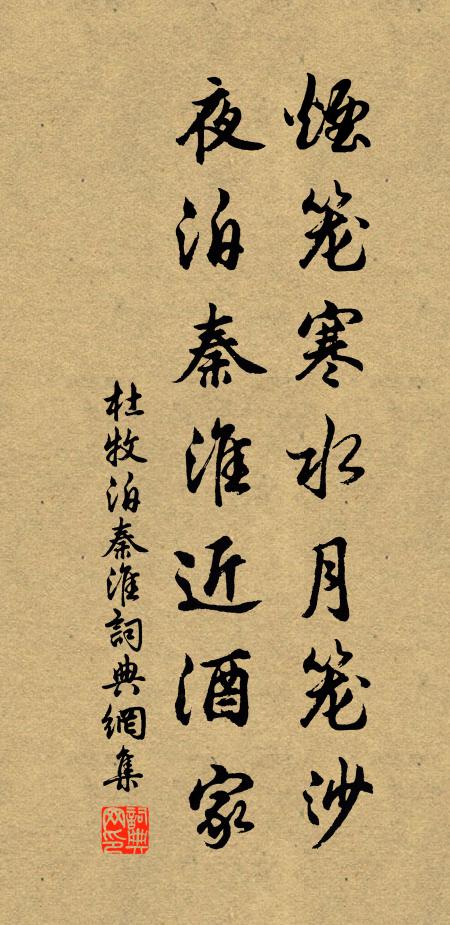 煙笼寒水月笼沙
夜泊秦淮近酒家
杜牧泊秦淮詞典網集
詞典网印